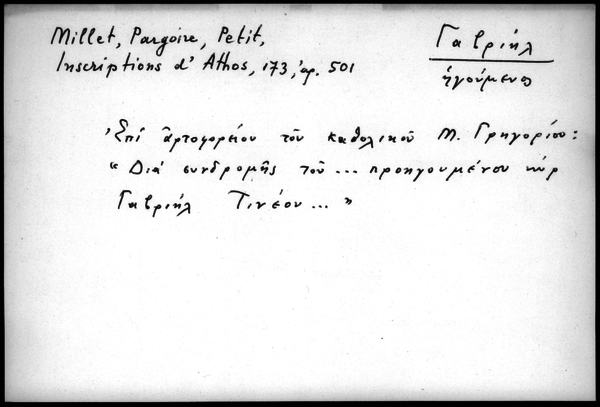 Millet, Pargoire, Petit,
Inscriptions d' Athos, 173, ἀρ. 501
Γαβριήλ
ἡγούμενος
Ἐπί ἀρτοφορείου τοῦ καθολικοῦ Μ. Γρηγορίου:
“ Διά συνδρομῆς τοῦ ... προηγουμένου κύρ
Γαβριήλ Τινέου ... ”